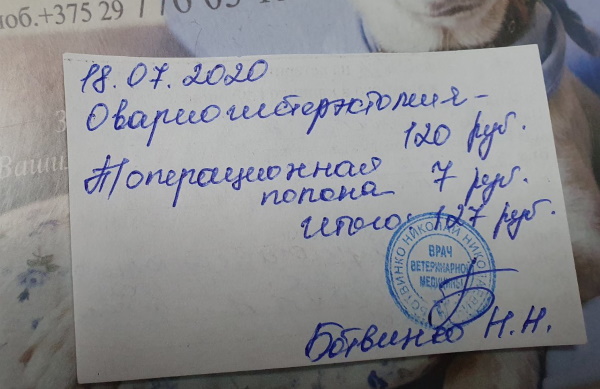 моб.+375 29 770 05
18.07.2020
Овариогистерэктомия-
120 руб.
Попериационная
попона 7 руб.
Итого: 127 руб.
БОТВИНКО НИКОЛАЙ НИКОЛАЕВИЧ
ВРАЧ
ВЕТЕРИНАРНОЙ
МЕДИЦИНЫ
Ботвинко Н.Н.
Ваши